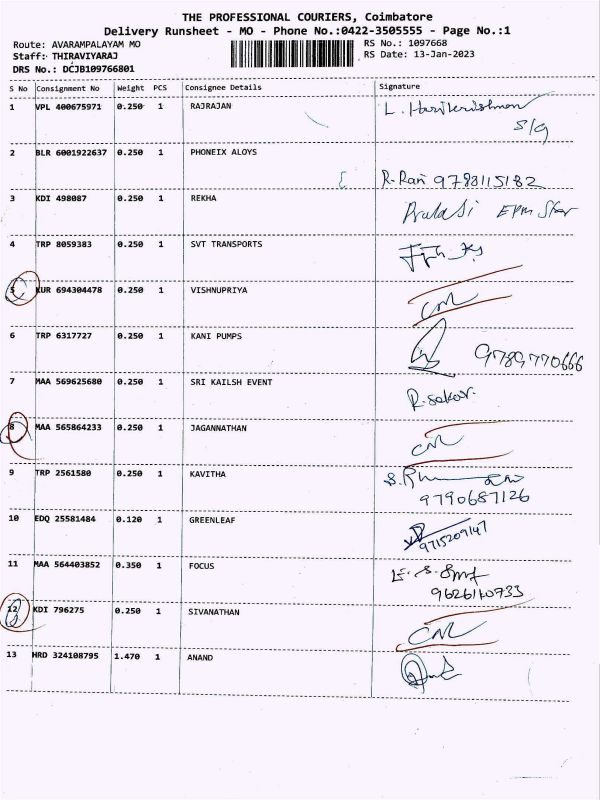 THE PROFESSIONAL COURIERS, Coimbatore
Delivery Runsheet - MO - Phone No.:0422-3505555 - Page No.:1
Route: AVARAMPALAYAM MO RS No.: 1097668
Staff: THIRAVIYARAJ RS Date: 13-Jan-2023
DRS No.: DCJB109766801
S No Consignment No Weight PCS Consignee Details Signature
1 VPL 400675971 0.250 1 RAJRAJAN L. Harikrishnan
S/G
2 BLR 6001922637 0.250 1 PHONEIX ALOYS R-Rani 9788115182
3 KDI 498087 0.250 1 REKHA
4 TRP 8059383 0.250 1 SVT TRANSPORTS
5 KUR 694304478 0.250 1 VISHNUPRIYA
6 TRP 6317727 0.250 1 KANI PUMPS 9789770666
7 MAA 569625680 0.250 1 SRI KAILSH EVENT
8 MAA 565864233 0.250 1 JAGANNATHAN
9 TRP 2561580 0.250 1 KAVITHA
9790687126
10 EDQ 25581484 0.120 1 GREENLEAF 9715209147
11 MAA 564403852 0.350 1 FOCUS
9626140733
12 KDI 796275 0.250 1 SIVANATHAN
13 HRD 324108795 1.470 1 ANAND